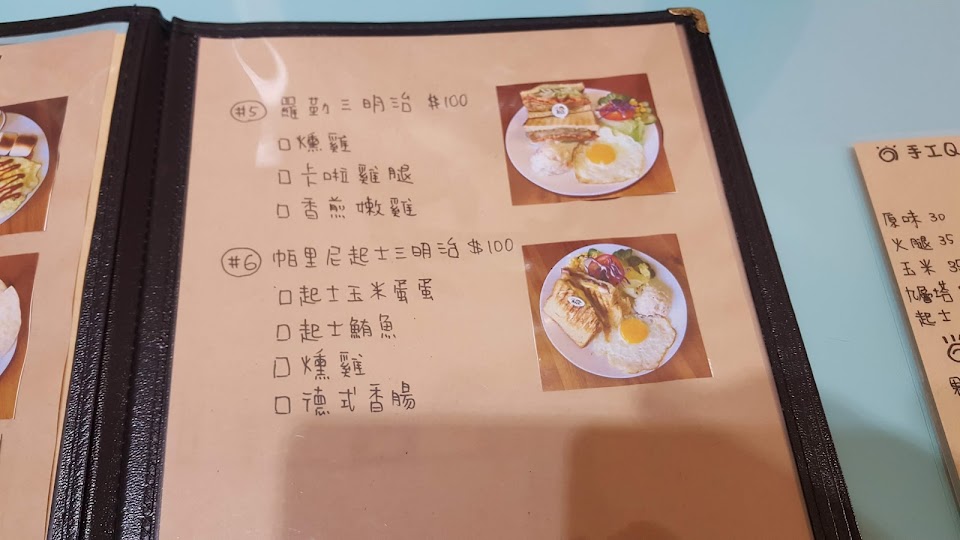 #5 羅勒三明治 $100
□燻雞
□卡啦雞腿
□香煎嫩雞
#6 帕里尼起士三明治 $100
□起士玉米蛋蛋
□起士鮪魚
□燻雞
□德式香腸
手工Q
原味 30
火腿 35
玉米 35
九層塔
起士